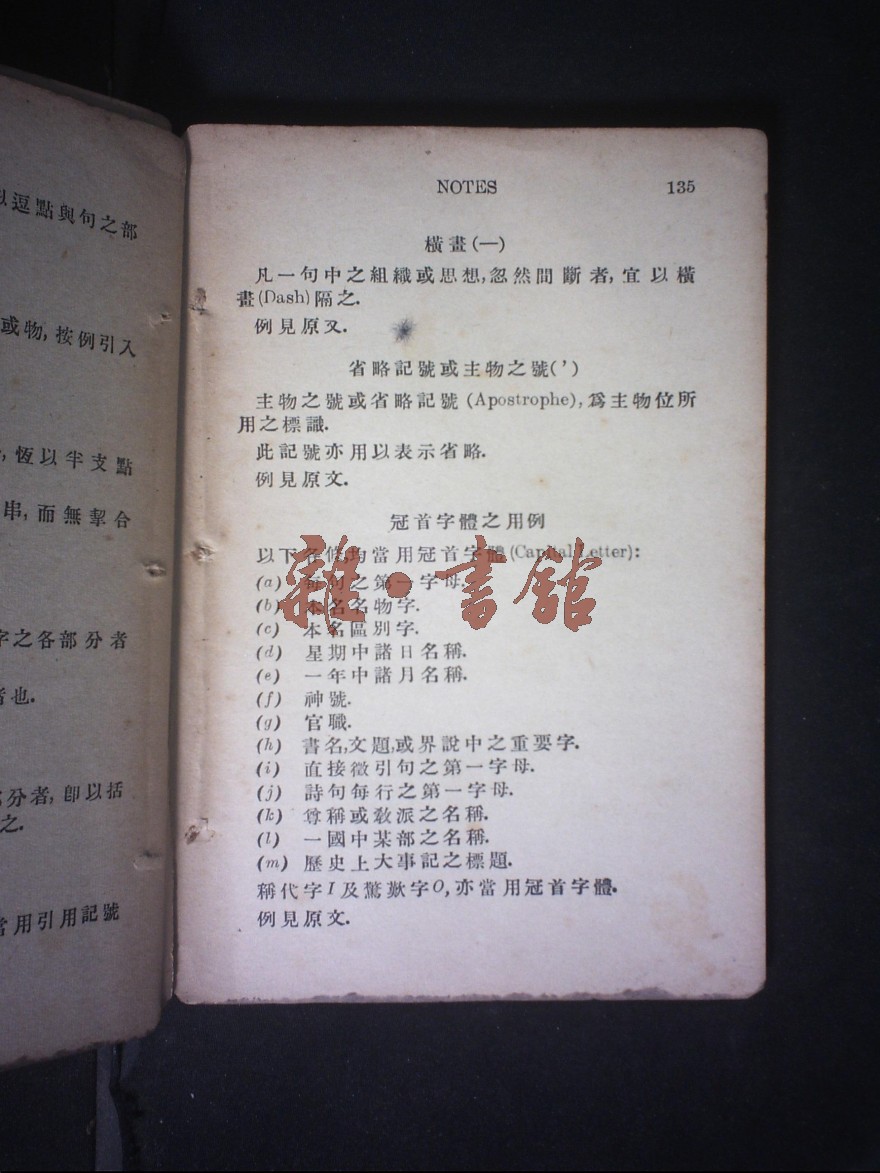 以逗點與句之部
或物,按例引入
恆以半支點
串,而無挈合
字之各部分者
者也.
分者,卽以括
之.
當用引用記號
NOTES 135
橫畫(—)
凡一句中之組織或思想,忽然間斷者,宜以橫
畫(Dash)隔之.
例見原文.
省略記號或主物之號(')
主物之號或省略記號(Apostrophe),爲主物位所
用之標識.
此記號亦用以表示省略.
例見原文.
冠首字體之用例
以下各條,均當用冠首字體(Capital Letter):
(a) 每句之第一字母.
(b) 本名名物字.
(c) 本名區別字.
(d) 星期中諸日名稱.
(e) 一年中諸月名稱.
(f) 神號.
(g) 官職.
(h) 書名,文題,或界說中之重要字.
(i) 直接徵引句之第一字母.
(j) 詩句每行之第一字母.
(k) 尊稱或敎派之名稱.
(l) 一國中某部之名稱.
(m) 歷史上大事記之標題.
稱代字I及驚歎字O,亦當用冠首字體.
例見原文.
雜·書館